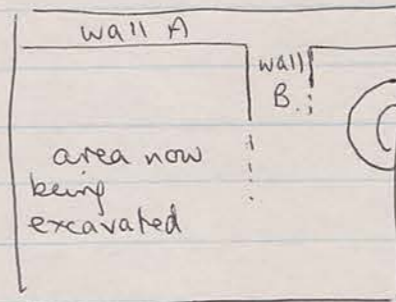 wall A
wall
B.
area now
being
excavated